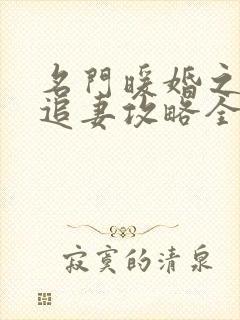 名門暖婚之
追妻攻略全
寂寞的清泉